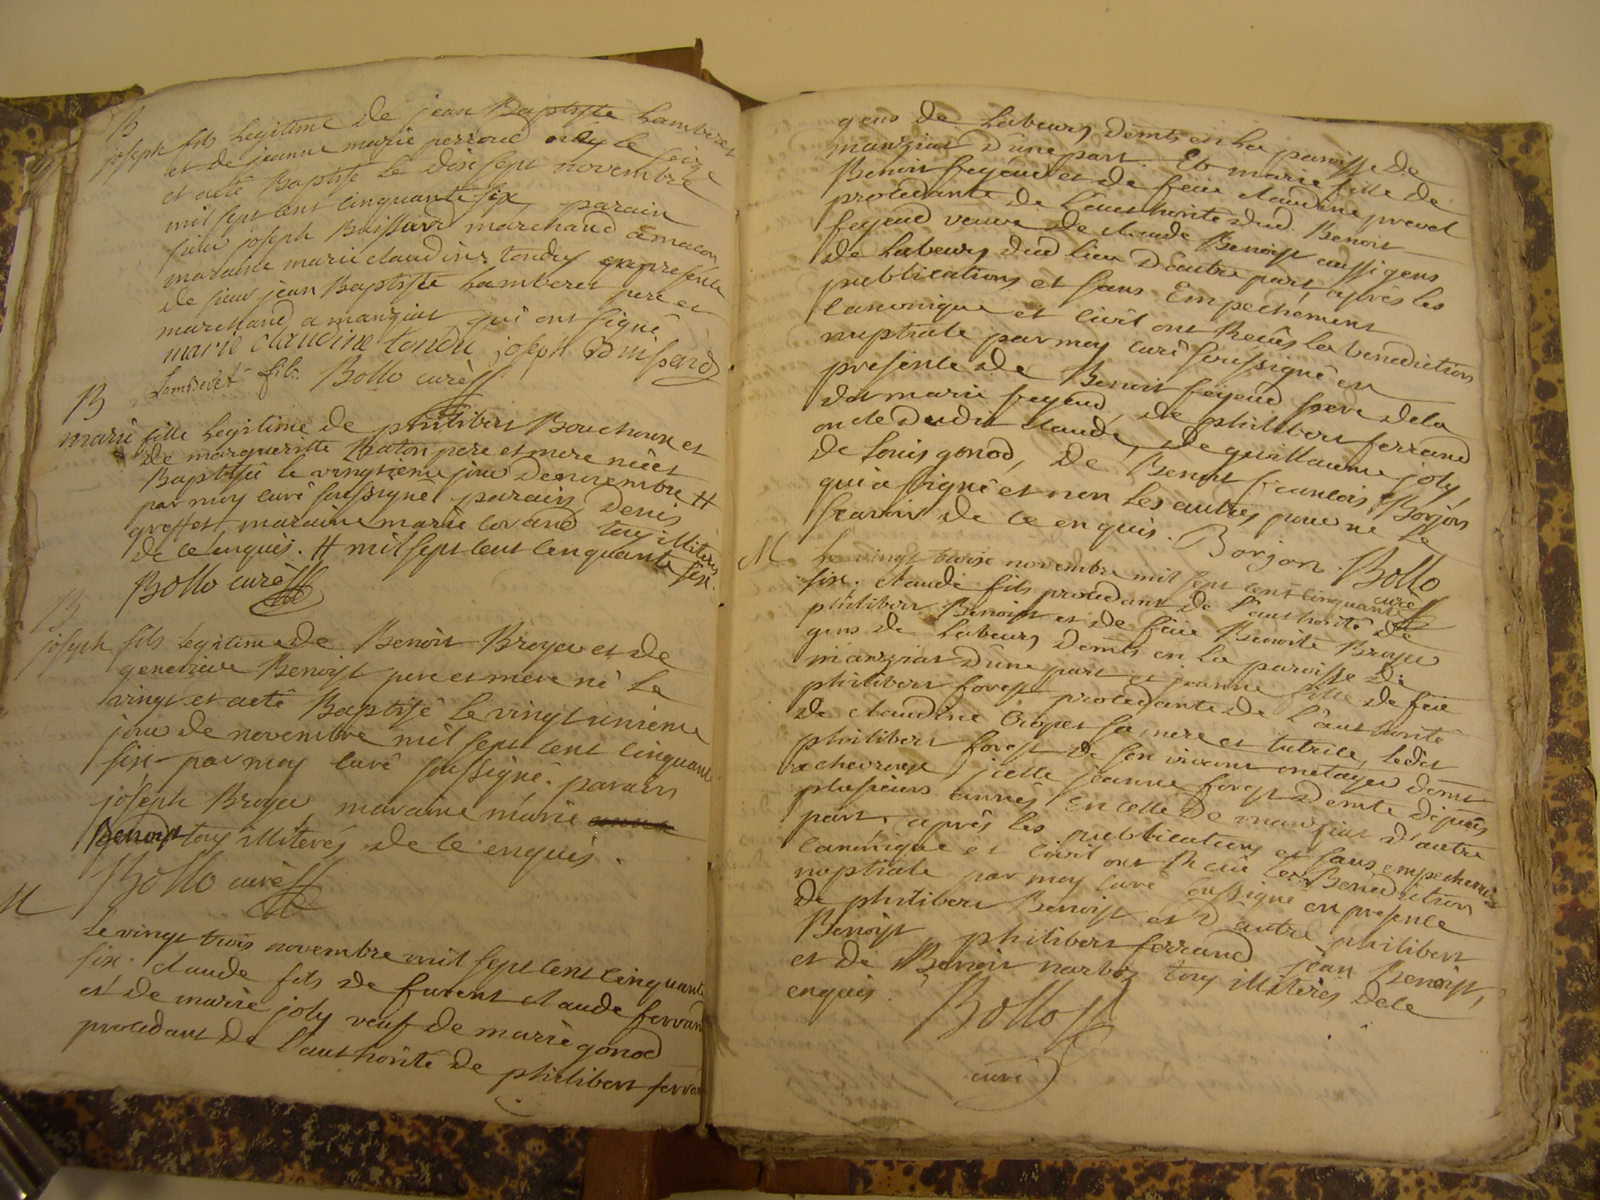 B
joseph fils legitime de jean Baptiste Lamberet
et de jeanne marie perraud nay le seize
et aeté Baptisé le dix sept novembre
mil sept cent cinquante six, parain
sieur joseph Buissard marchand a macon
maraine marie claudine tondu en presence
de sieur jean Baptiste Lamberet pere et
marchand a manziat qui ont signé
marie claudine tondu joseph Buissard
Lamberet fils Bollo curé
B
marie fille legitime de philibert Bouchoux et
de margueritte Chaton pere et mere née et
Baptisée le vingtieme jour de novembre #
par moy curé soussigné parain Denis
greffet, maraine marie lorand tous illiterés
de ce enquis. # mil sept cent cinquante six.
Bollo curé
B
joseph fils legitime de Benoit Broyer et de
genevieve Benoist pere et mere né le
vingt et aeté Baptisé le vingt unieme
jour de novembre mil sept cent cinquante
six par moy curé soussigné. parain
joseph Broyer maraine marie
Benoist tous illiterés de ce enquis.
Bollo curé
M
Le vingt trois novembre mil sept cent cinquante
six. claude fils de furent claude ferrand
et de marie joly veuf de marie gonod
procedant de l'authorité de philibert ferrand
gens de Labeurs demts en la paroisse de
manziat d'une part. Et marie fille de
Benoit feyeud et de feüe claudine prevel
procedante de l'authorité dud. Benoit
feyeud veuve de claude Benoist aussi gens
de Labeurs dud lieu d'autre part, après les
publications et sans Empechement
canonique et civil ont Receus la benediction
nuptiale par moy curé soussigné en
presence de Benoit feyeud frere de la
dte marie feyeud, de philibert ferrand
oncle dudit claude, de guillaume joly,
de Louis gonod, de Benoit francois Borjon
qui a signé et non les autres pour ne le
scavoir de ce enquis. Borjon. Bollo
curé
M
Le vingt trois novembre mil sept cent cinquante
six. claude fils procedant de l'authorité de
philibert Benoist et de feüe Benoite Broyer
gens de Labeurs demts en la paroisse de
manziat d'une part et jeanne fille de feu
philibert forest procedante de l'authorité
de claudine Croyet sa mere et tutrice, ledit
philibert forest de son vivant metayer demt
a chevroux icelle jeanne forest demte depuis
plusieurs années en celle de manziat d'autre
part, après les publications et sans empechement
canonique et civil ont Recu la Benediction
nuptiale par moy curé soussigné en presence
de philibert Benoist et d'autre philibert
Benoist philibert ferrand jean Benoist,
et de Benoit narboz tous illiterés de ce
enquis. Bollo
curé